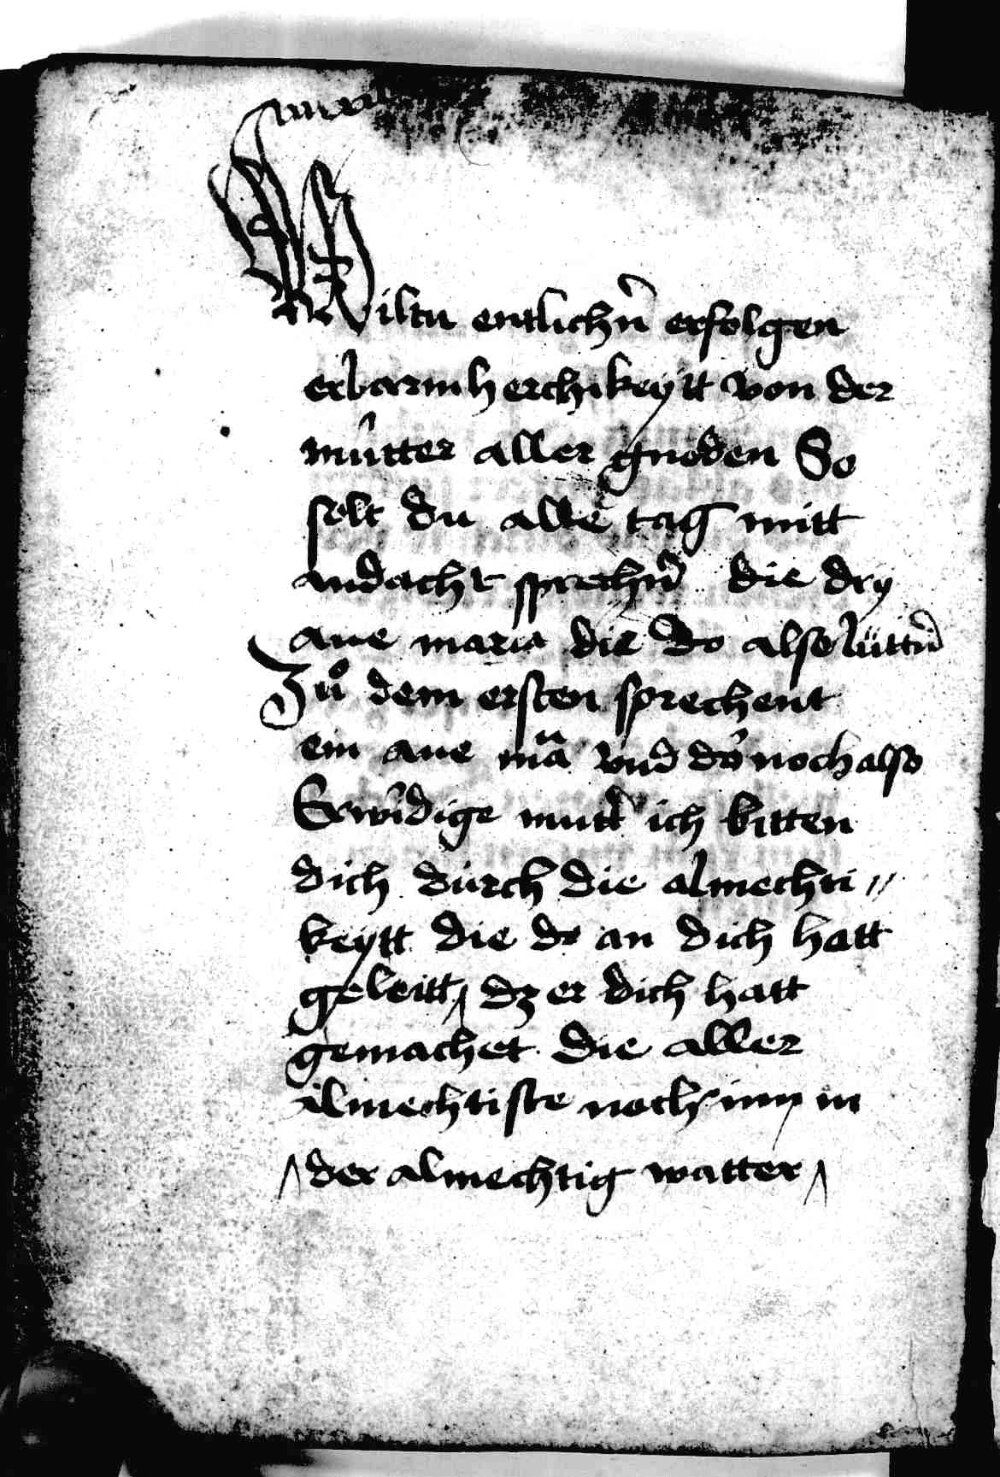 Wiltu entlichn̄ erfolgen
erbarmherchikeytt von der
mûtter aller gnoden So
solt du alle tag mitt
andacht sprechn̄ die dry
aue maria die do also lüttn̄
Zuͦ dem ersten sprechent
ein aue mā vnd do noch also
Erwidige mutt̄ ich bitten
dich durch die almechti〃
keytt die do an dich hatt
geleitt dz er dich hatt
gemachet die aller
almechtiste noch im in
der almechtig watter